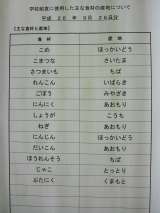 学校給食に使用した主な食材の産地について
平成 26年 9月 26日分
【主な食材と産地】
食材 産地
こめ ほっかいどう
こまつな さいたま
さつまいも ちば
れんこん いばらき
ごぼう みやざき
にんにく あおもり
しょうが こうち
ねぎ あおもり
にんじん ほっかいどう
だいこん あおもり
ほうれんそう ちば
じゃこ とっとり
ぶたにく くまもと